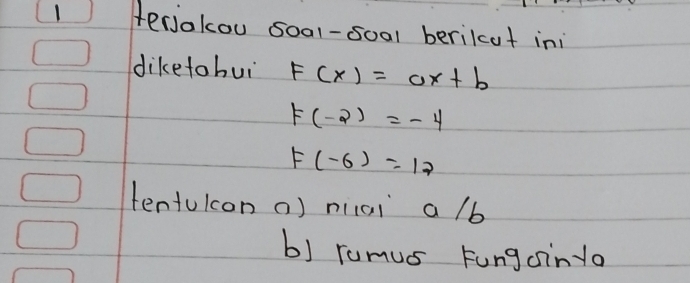 1 terjakau soal-soal berikut ini
diketahui F(x) = ax + b
F(-2) = -4
F(-6) = 12
tentukan a) nilai a/b
b) rumus Fungsinya